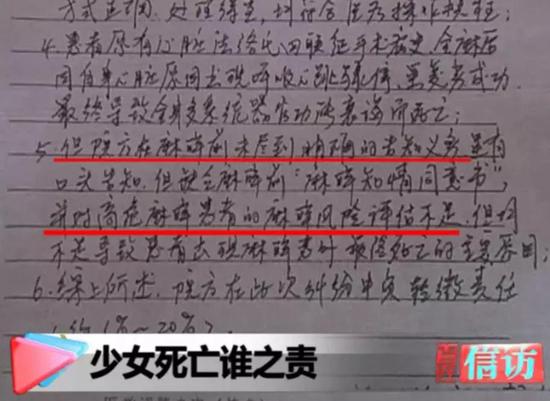 方式正确、处理得当，均符合医疗操作规程；
4.患者原有心脏法洛氏四联征手术病史，全麻后
因自身心脏原因出现呼吸心跳骤停，虽复苏成功，
最终导致全身多系统器官功能衰竭而死亡；
5.但院方在麻醉前未尽到明确的告知义务，虽有
口头告知，但缺全麻醉前“麻醉知情同意书”，
并对高危麻醉患者的麻醉风险评估不足，但均
不是导致患者出现麻醉意外最终死亡的主要原因；
6.综上所述，院方在此次纠纷中负轻微责任
约1%～20%
少女死亡谁之责
信访